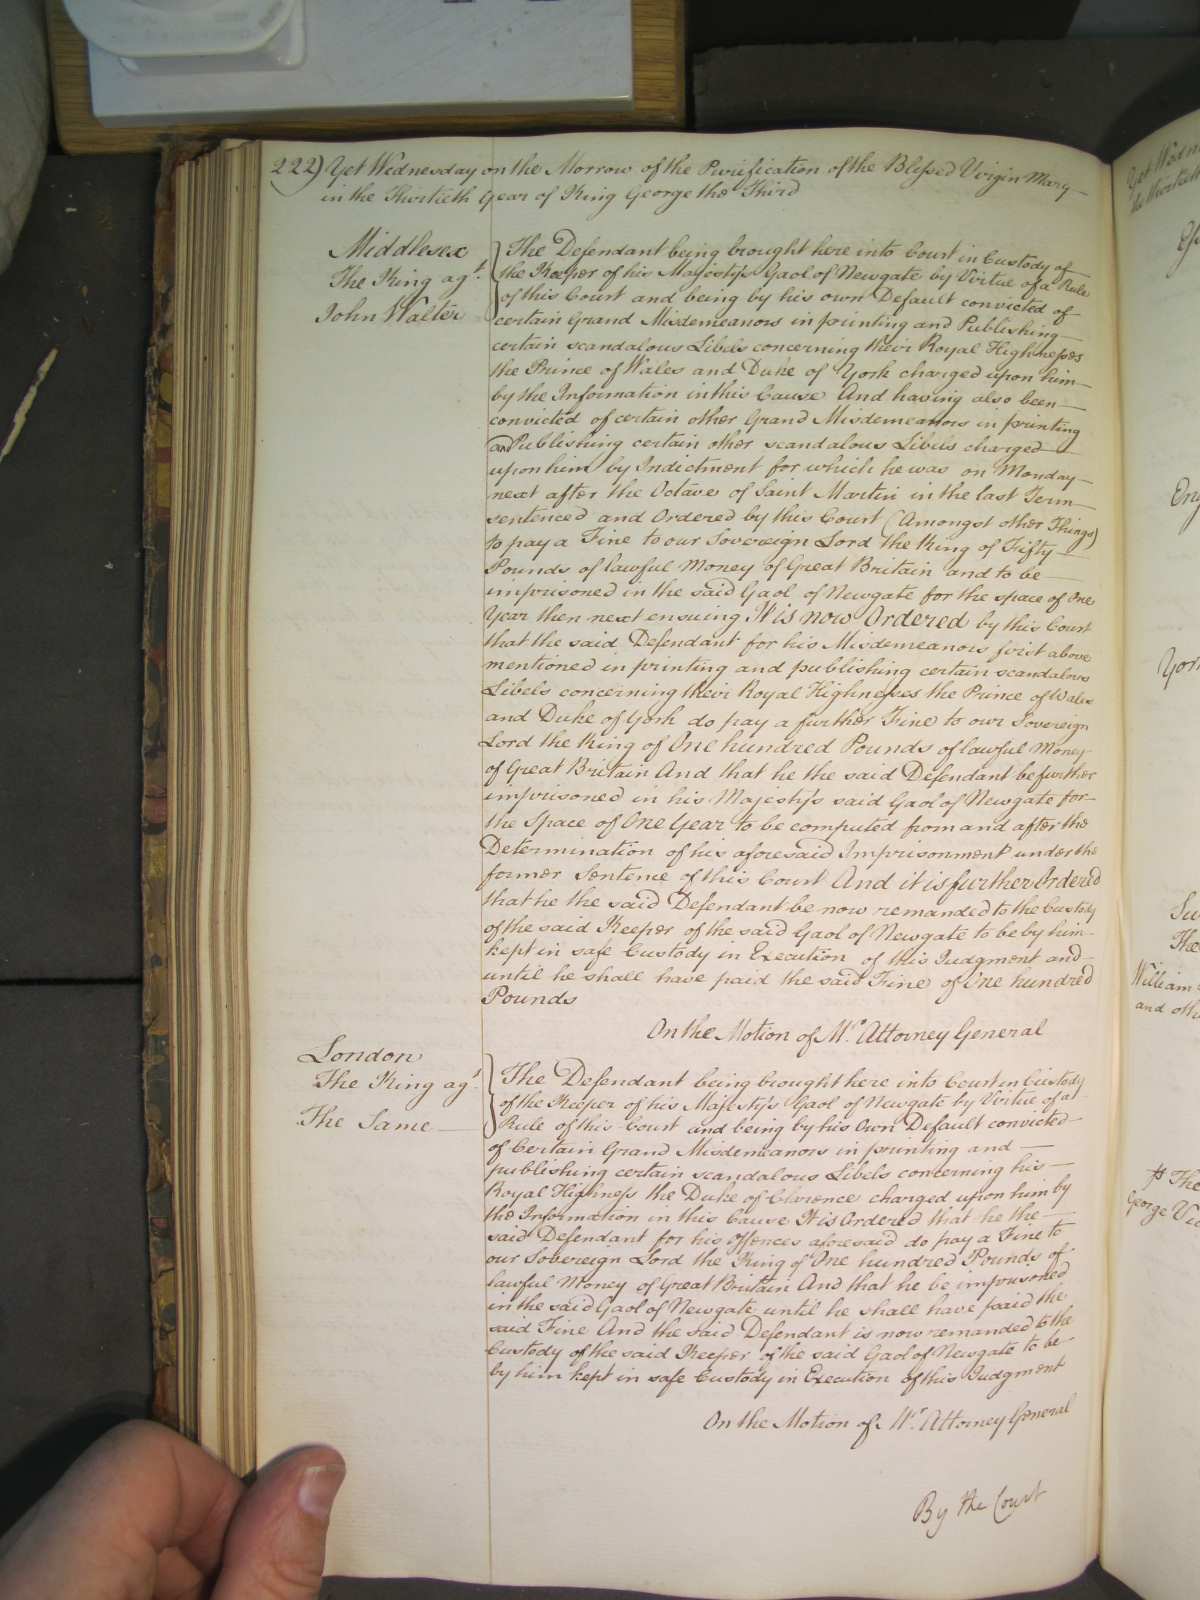 222) Yet Wednesday on the Morrow of the Purification of the Blessed Virgin Mary
in the Thirtieth Year of King George the Third
Middlesex
The King agt.
John Walter
The Defendant being brought here into Court in Custody of
the Keeper of his Majesty's Gaol of Newgate by Virtue of a Rule
of this Court and being by his own Default convicted of
certain Grand Misdemeanors in printing and Publishing
certain scandalous Libels concerning their Royal Highnesses
the Prince of Wales and Duke of York charged upon him
by the Information in this Cause And having also been
convicted of certain other Grand Misdemeanors in printing
and Publishing certain other scandalous Libels charged
upon him by Indictment for which he was on Monday
next after the Octave of Saint Martin in the last Term
sentenced and Ordered by this Court (Amongst other Things)
to pay a Fine to our Sovereign Lord the King of Fifty
Pounds of lawful Money of Great Britain and to be
imprisoned in the said Gaol of Newgate for the space of One
Year then next ensuing It is now Ordered by this Court
that the said Defendant for his Misdemeanors first above
mentioned in printing and publishing certain scandalous
Libels concerning their Royal Highnesses the Prince of Wales
and Duke of York do pay a further Fine to our Sovereign
Lord the King of One hundred Pounds of lawful Money
of Great Britain And that he the said Defendant be further
imprisoned in his Majesty's said Gaol of Newgate for
the Space of One Year to be computed from and after the
Determination of his aforesaid Imprisonment under the
former Sentence of this Court And it is further Ordered
that he the said Defendant be now remanded to the Custody
of the said Keeper of the said Gaol of Newgate to be by him
kept in safe Custody in Execution of this Judgment and
until he shall have paid the said Fine of One hundred
Pounds
On the Motion of Mr. Attorney General
London
The King agt.
The Same
The Defendant being brought here into Court in Custody
of the Keeper of his Majesty's Gaol of Newgate by Virtue of a
Rule of this Court and being by his Own Default convicted
of Certain Grand Misdemeanors in printing and
publishing certain scandalous Libels concerning his
Royal Highness the Duke of Clarence charged upon him by
the Information in this Cause It is Ordered that he the
said Defendant for his Offences aforesaid do pay a Fine to
our Sovereign Lord the King of One hundred Pounds of
lawful Money of Great Britain And that he be imprisoned
in the said Gaol of Newgate until he shall have paid the
said Fine And the said Defendant is now remanded to the
Custody of the said Keeper of the said Gaol of Newgate to be
by him kept in safe Custody in Execution of this Judgment
On the Motion of Mr. Attorney General
By the Court
Yet
The
William
and
The
George